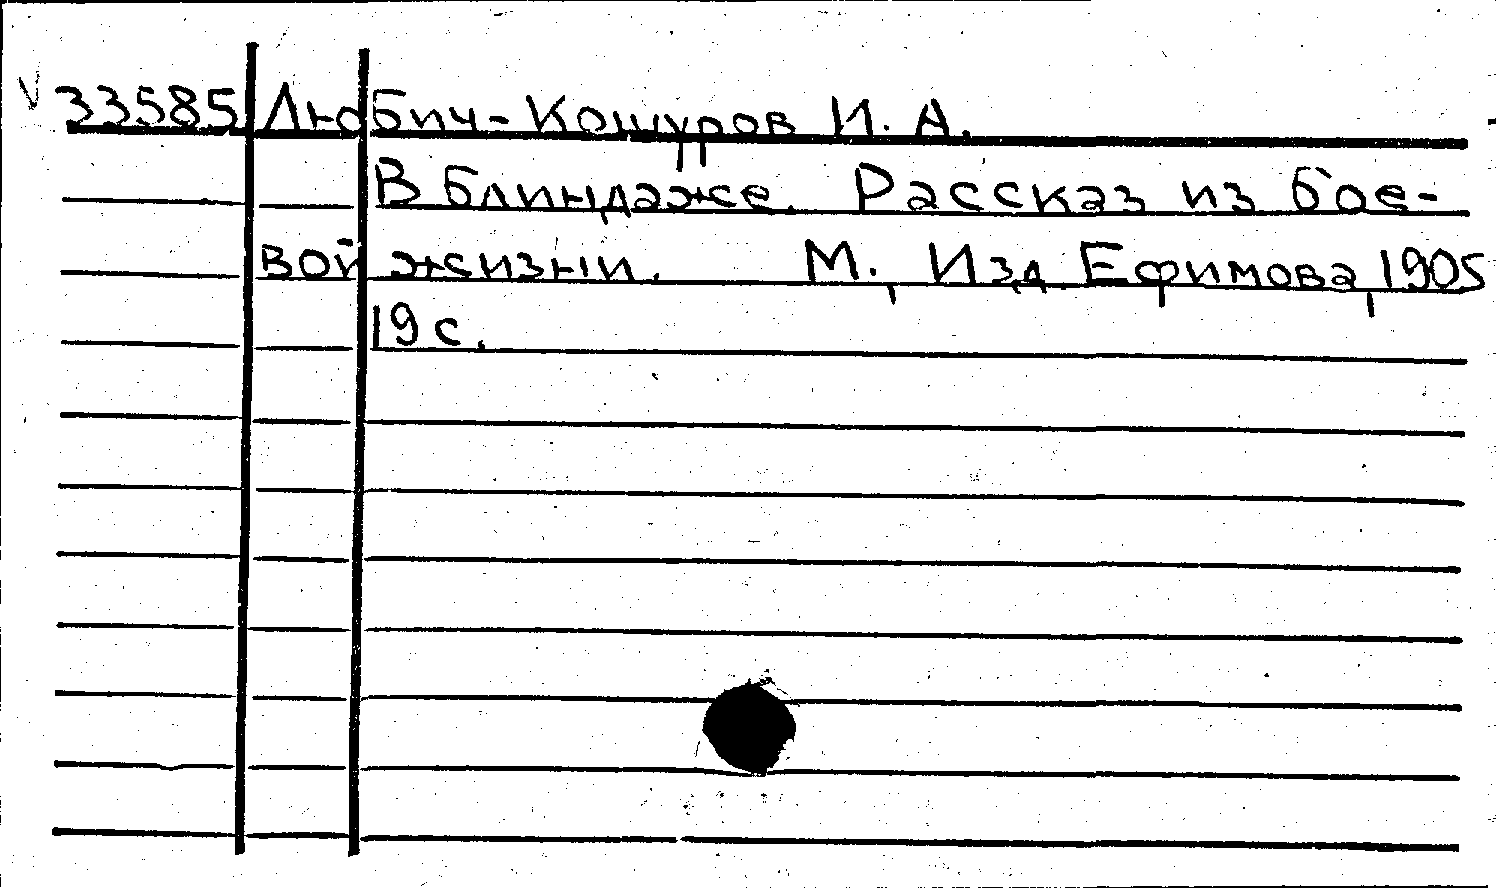 33585 Любич-Кошуров И. А.
В блиндаже. Рассказ из бое-
вой жизни. М., Изд. Ефимова, 1905
19 с.